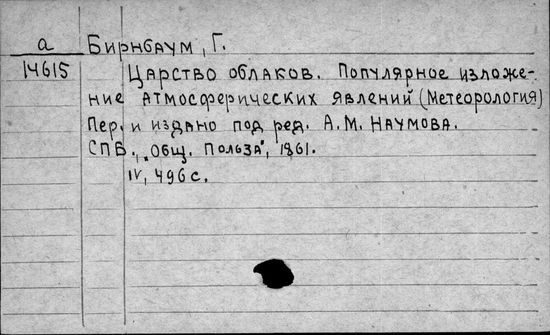 а Бирнбаум, Г.
14615 Царство облаков. Популярное изложе-
ние атмосферических явлений (Метеорология)
Пер. и издано под ред. А.М. Наумова.
СПБ., „Общ. Польза", 1861.
IV, 496 с.